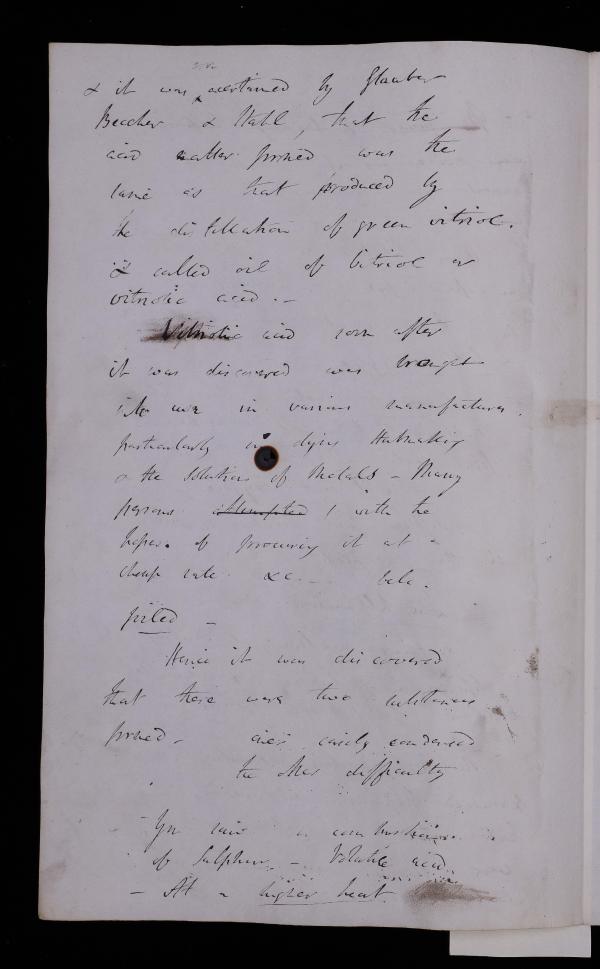 & it was ascertained by Glauber
Beccher & Stahl, that the
acid matter formed was the
same as that produced by
the distillation of green vitriol.
& called oil of Vitriol or
vitriolic acid. -
Vitriolic acid soon after
it was discovered was brought
into use in various manufactures.
particularly in dying Hatmaking
& the solutions of Metals - Many
persons attempted / with the
hopes. of procuring it at a
cheap rate &c. -
fited -
Hence it was discovered
that there were two substances
formed - one easily condensed
the other difficulty
You saw a combustion
of Sulphur. - Volatile acid.
- At a higher heat.